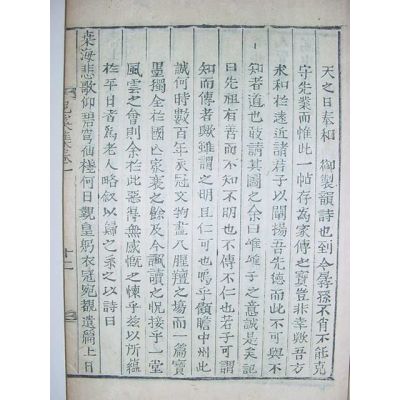 天之日奉和 御製韻詩也到今孱孫不肖不能克
守先業而惟此一帖存爲家傳之寶豈非幸歟吾方
求和於遠近諸君子以闡揚吾先德而此不可與不
知者道也敢請其圖之余曰唯唯子之意誠是矣記
曰先祖有善而不知不明也不傳不仁也若子可謂
知而傳者歟雖謂之明且仁可也嗚乎顧瞻中州此
誠何時數百年衣冠文物盡入腥羶之場而一篇寶
墨獨全於國亡家喪之餘及今諷讀之怳接乎一堂
風雲之會則余於此惡得無感慨之懷乎茲以所
於平日者爲老人略叙以歸之系之以詩曰
桒海悲歌仰碧穹仙棧何日覲皇躬衣冠宛覩遺篇上日